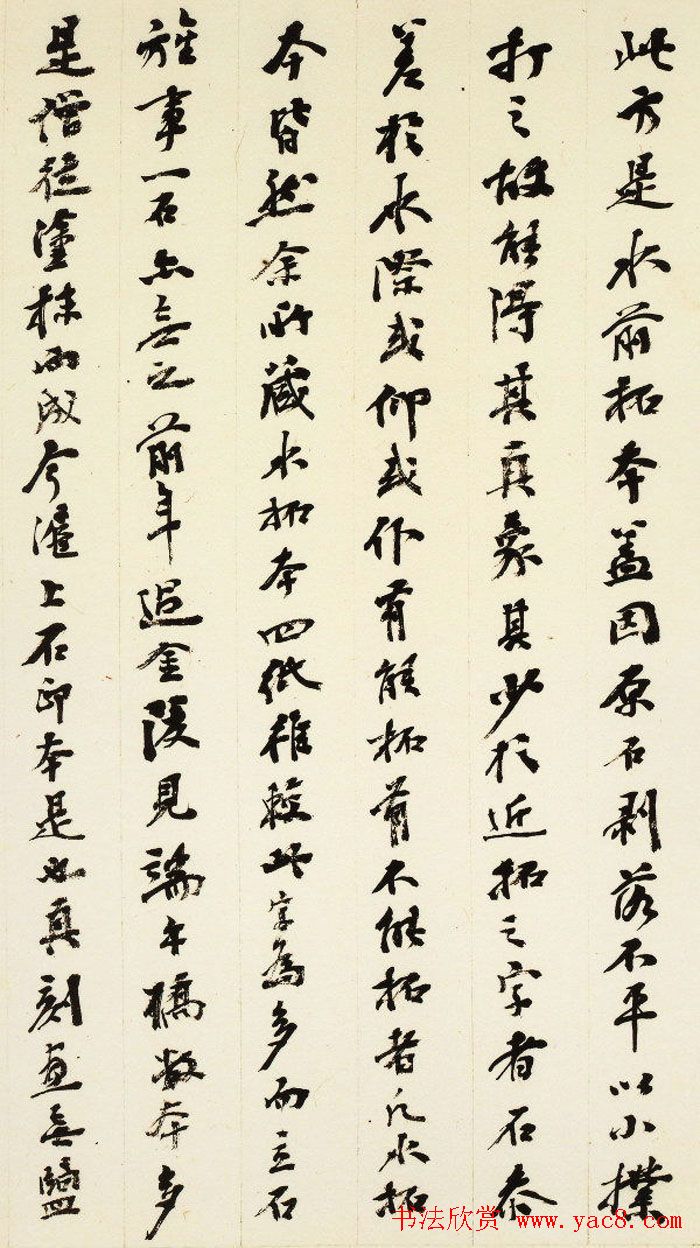 此方是水前拓本蓋因原石剥落不平以小撲
打之故能得其真象其少於近拓之字者石泰
差於水際或仰或仆有能拓有不能拓者凡水拓
本皆然余所藏水拓本四紙稚較此字為多而立石
旌事一石亦無之前年過金陵見端午橋數本多
是僧徒塗抹而成今滬上石印本是也真刻直無鹽
书法欣赏 www.yac8.com